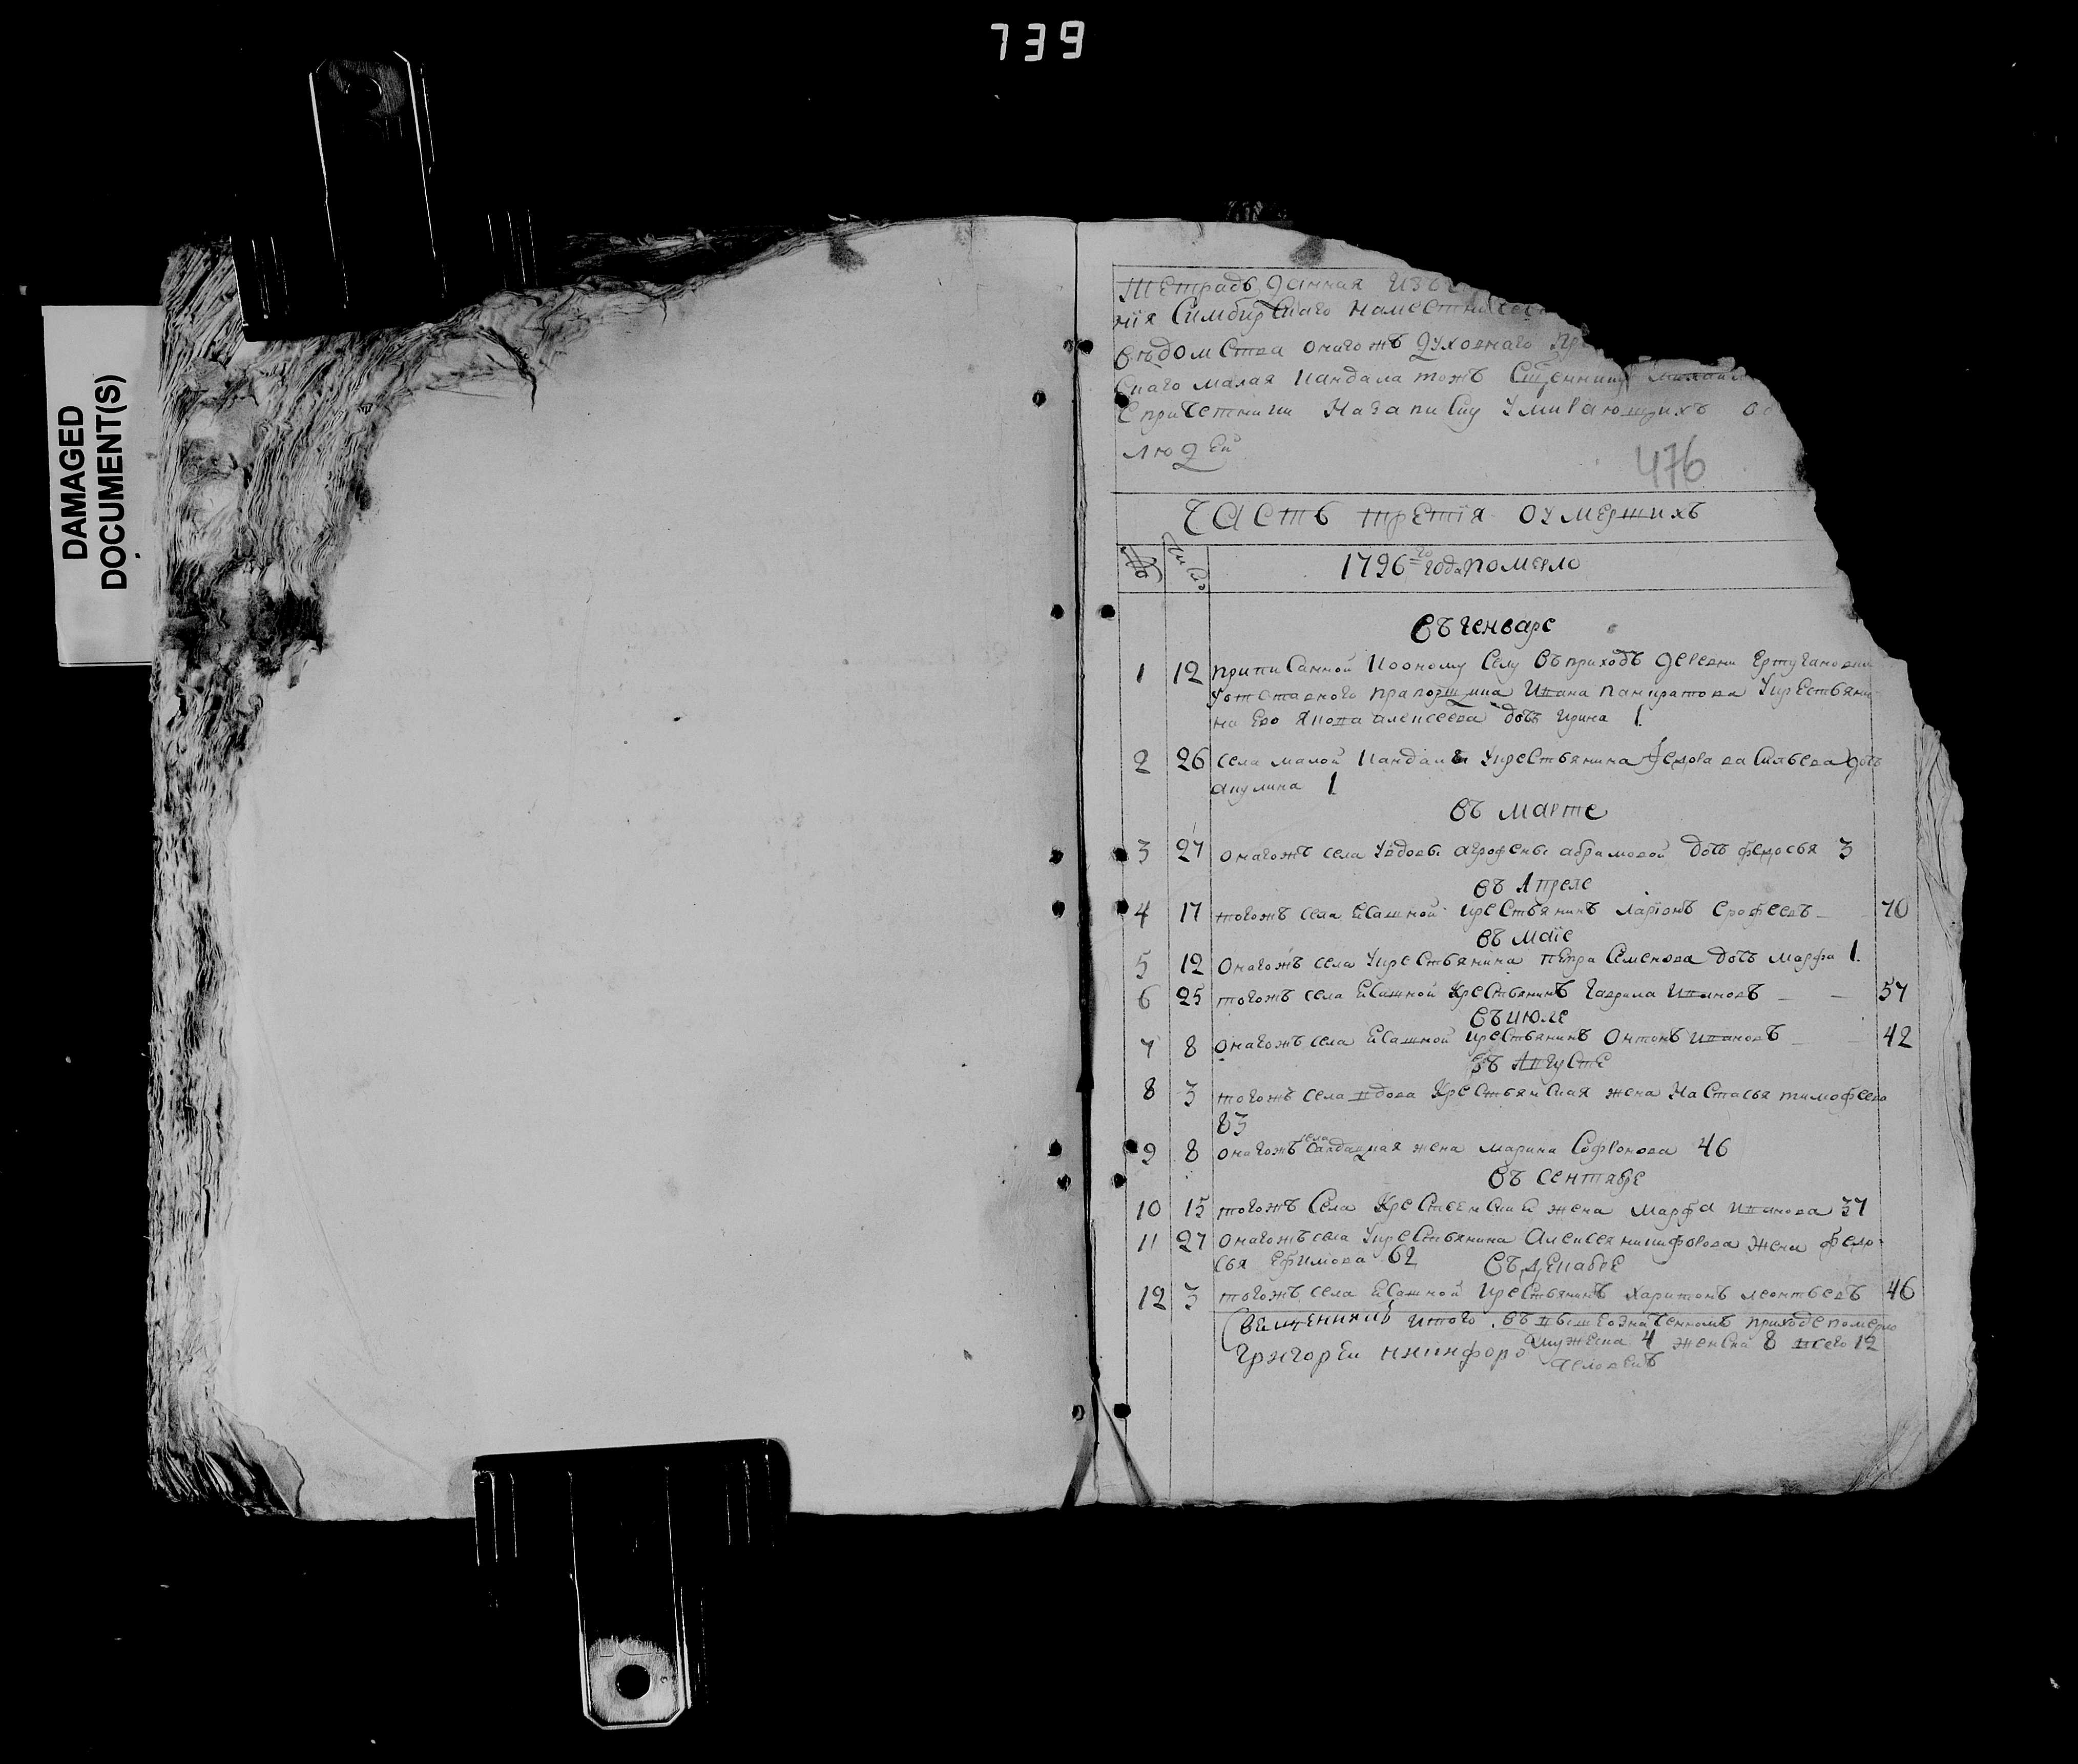 739
DAMAGED
DOCUMENT(S)
Тетрадь данная изъ
нія Симбирскаго наместничес
вѣдомства онагожъ духовнаго пр
скаго малая Кандала тожъ сщенник михаил
с причетники на записку умирающихъ
людей
476
часть третія оумершихъ
№ числ
1796 го года помѣрло
въ генваре
1 12 приписанной кооному селу въ приходъ деревни Ертугановки
у отставного прапорщика Ивана Панкратова у крестьяни
на Ево якова алексеева дочь ирина 1
2 26 села малой Кандалы у крестьянина Федора васильева дочь
акулина 1
въ марте
3 27 онагожъ села у вдовы агрофены абрамовой дочь федосья 3
въ Апреле
4 17 тогожъ села ясашной крестьянинъ ларіонъ ерофеевъ 70
въ маіе
5 12 онагожъ села у крестьянина петра семенова дочь марфа 1
6 25 тогожъ села ясашной крестьянинъ гаврила Ивановъ 57
въ июле
7 8 онагожъ села ясашной крестьянинъ онтонъ ивановъ 42
въ Августе
8 3 тогожъ села вдова крестьянская жена настасья тимофеева
83
9 8 онагожъ села салдацкая жена марина софронова 46
въ сентябре
10 15 тогожъ села крестьянская жена марфа иванова 37
11 27 онагожъ села у крестьянина алексея никифорова жена федо-
сья ефимова 62
въ декабре
12 3 тогожъ села ясашной крестьянинъ харитонъ леонтьевъ 46
Священникъ итого въ вышеозначенномъ приходе померло
Григореи никифоро мужеска 4 женска 8 всего 12
человекъ